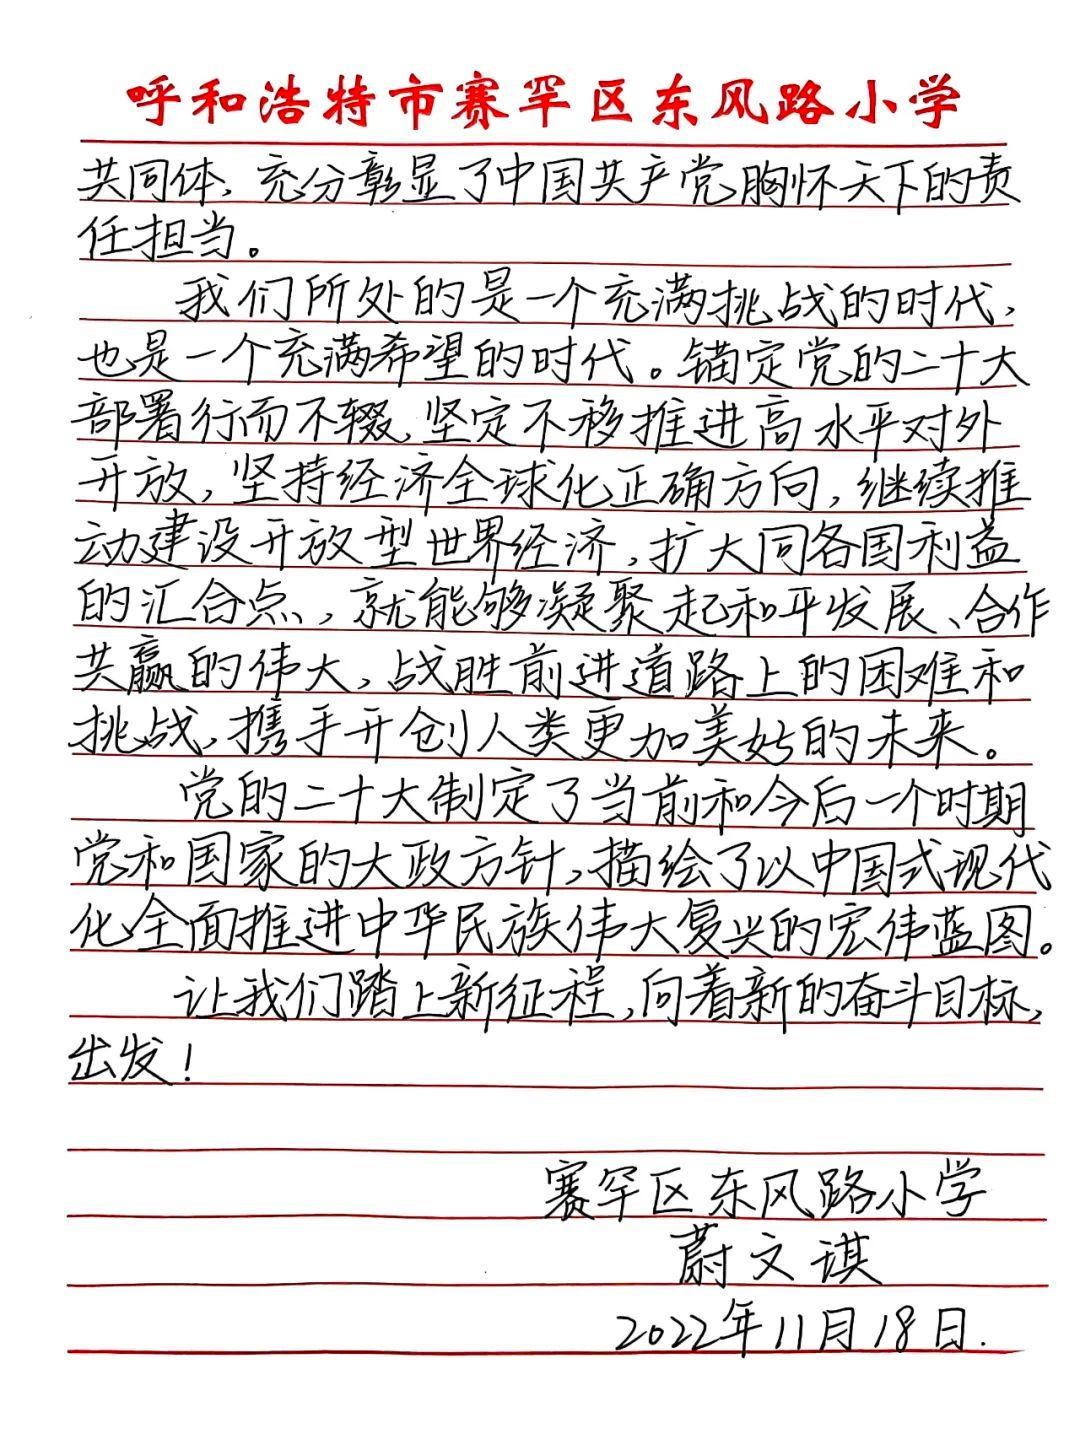 呼和浩特市赛罕区东风路小学
共同体，充分彰显了中国共产党胸怀天下的责
任担当。
我们所处的是一个充满挑战的时代，
也是一个充满希望的时代。锚定党的二十大
部署行而不辍，坚定不移推进高水平对外
开放，坚持经济全球化正确方向，继续推
动建设开放型世界经济，扩大同各国利益
的汇合点，就能够凝聚起和平发展、合作
共赢的伟大，战胜前进道路上的困难和
挑战，携手开创人类更加美好的未来。
党的二十大制定了当前和今后一个时期
党和国家的大政方针，描绘了以中国式现代
化全面推进中华民族伟大复兴的宏伟蓝图。
让我们踏上新征程，向着新的奋斗目标，
出发！
赛罕区东风路小学
蔚文琪
2022年11月18日.